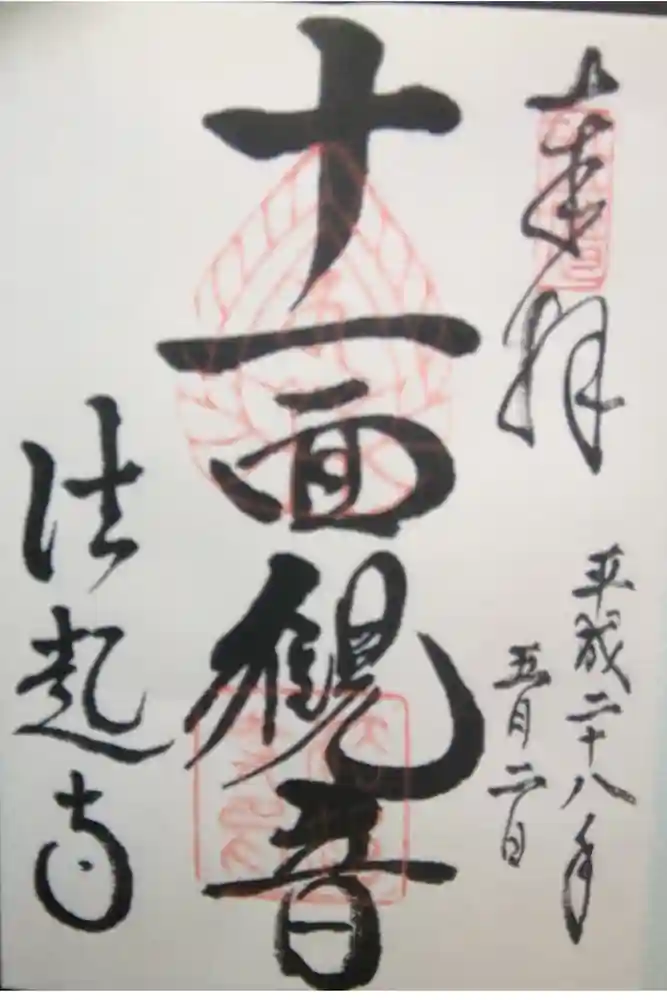 奉拝
平成二十八年
五月二日
十一面観音
法起寺